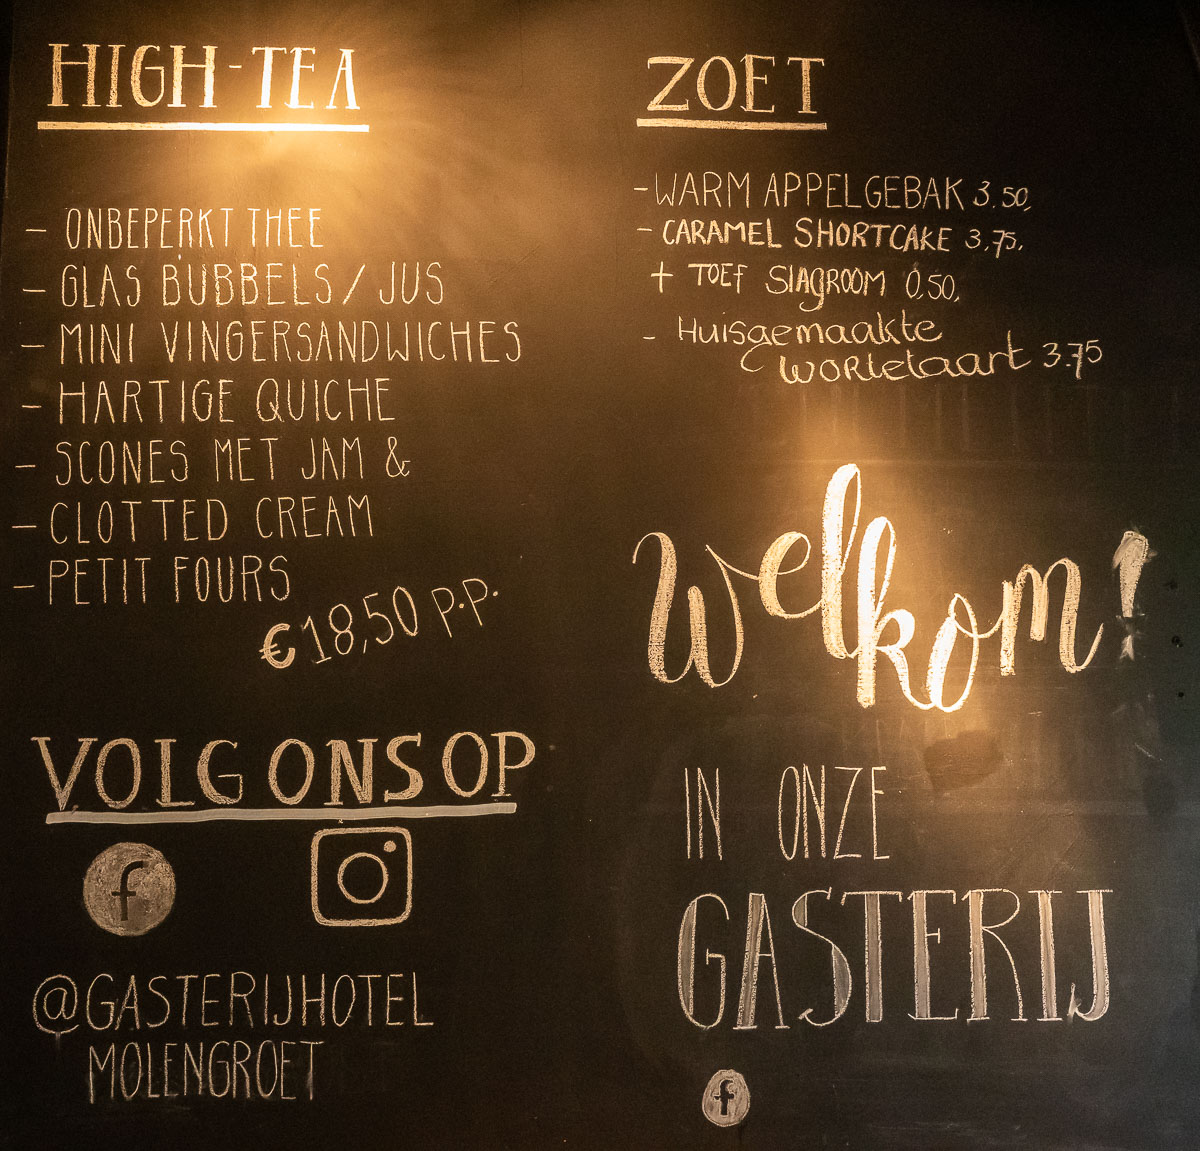 HIGH-TEA
- ONBEPERKT THEE
- GLAS BUBBELS / JUS
- MINI VINGERSANDWICHES
- HARTIGE QUICHE
- SCONES MET JAM &
- CLOTTED CREAM
- PETIT FOURS
€18,50 P.P.
VOLG ONS OP
f
@GASTERIJHOTEL
MOLENGROET
ZOET
- WARM APPELGEBAK 3.50,
- CARAMEL SHORTCAKE 3,75,
+ TOEF SlAgROOM 0,50,
- Huisgemaakte
worteltaart 3.75
Welkom!
IN ONZE
GASTERIJ
f